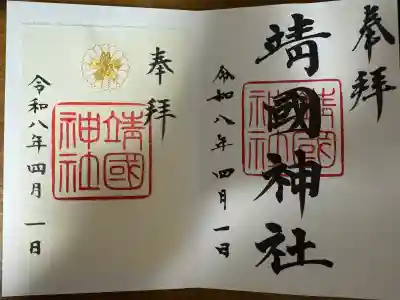 奉拝
靖國神社
靖國神社
令和八年四月一日
奉拝
靖國神社
令和八年四月一日